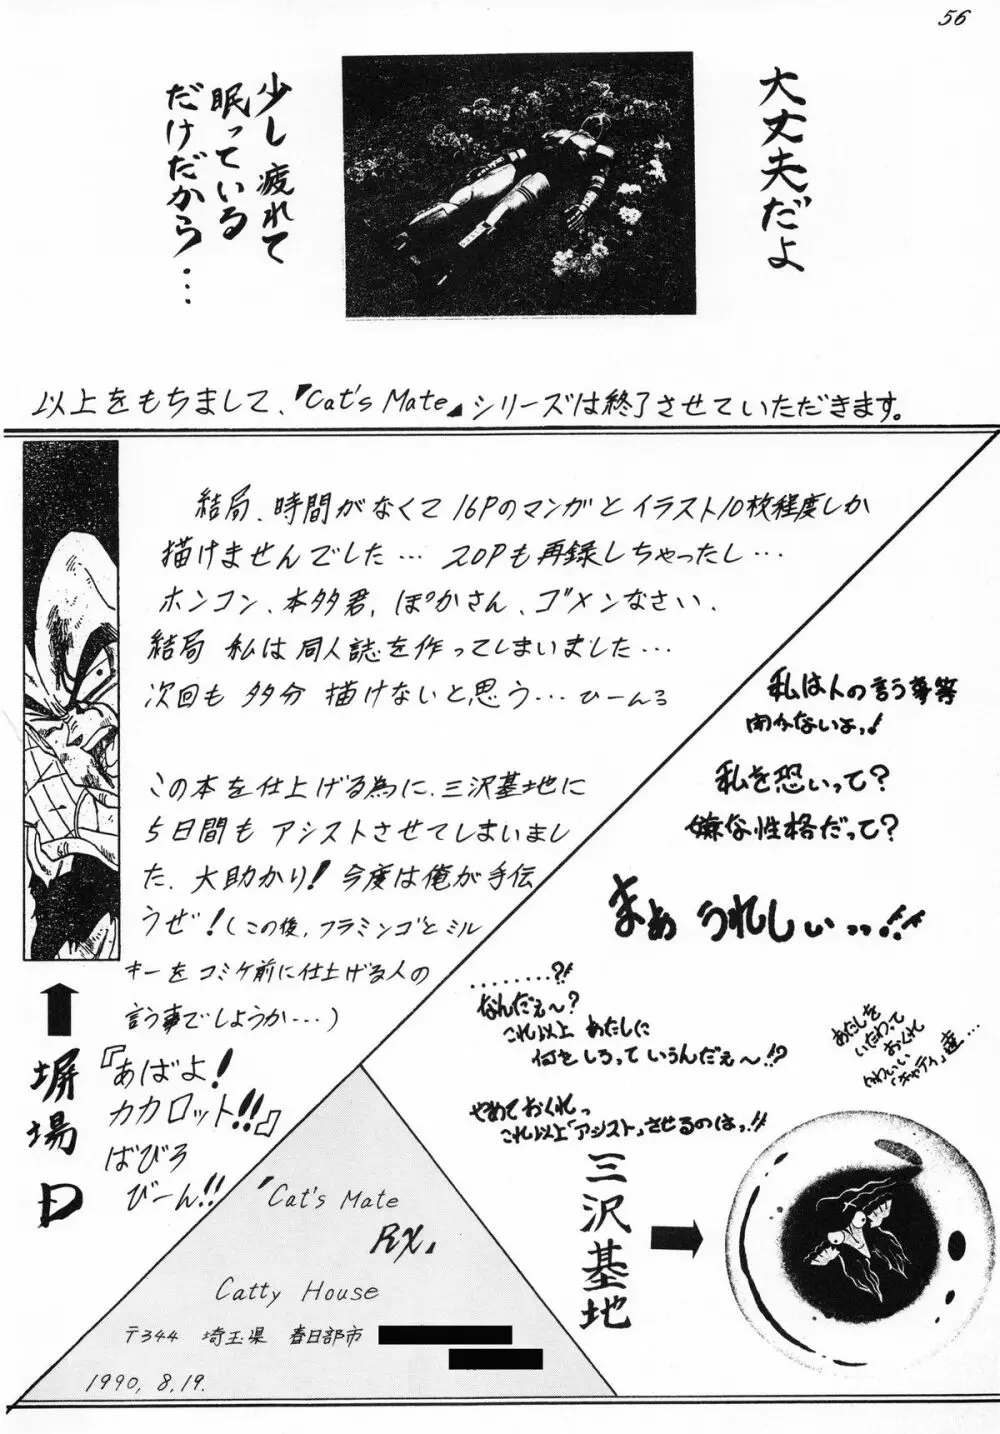 56
大丈夫だよ
少し疲れて
眠っている
だけだから・・・
以上をもちまして、『Cat's Mate』シリーズは終了させていただきます。
結局、時間がなくて16Pのマンガとイラスト10枚程度しか
描けませんでした… 20Pも再録しちゃったし…
ホンコン、本多君、ぽかさん、ゴメンなさい、
結局 私は同人誌を作ってしまいました…
次回も 多分 描けないと思う…ひーんろ
この本を仕上げる為に、三沢基地に
5日間も アシストさせてしまいまし
た、大助かり! 今度は俺が手伝
うぜ!(この後、フラミンゴとミル
キーを コミケ前に仕上げる人の
言う事でしょうか・・・)
『あばよ!
カカロット!!』
ばびろ
びーん!!
塀場D
私は人の言う事等
聞かないよっ!
私を恐いって?
嫌な性格だって?
まぁ うれしぃっ!!
........?!
なんだぇ〜?
これ以上 あたしに
何をしろって いうんだぇ〜!?
やめておくれっ
これ以上「アシスト」させるのはっ!!
あたしを
いたわって
おくれ
かわいい
「キャティ」達…
三沢基地
『Cat's Mate
RX』
Catty House
〒344 埼玉県 春日部市
1990, 8, 19.